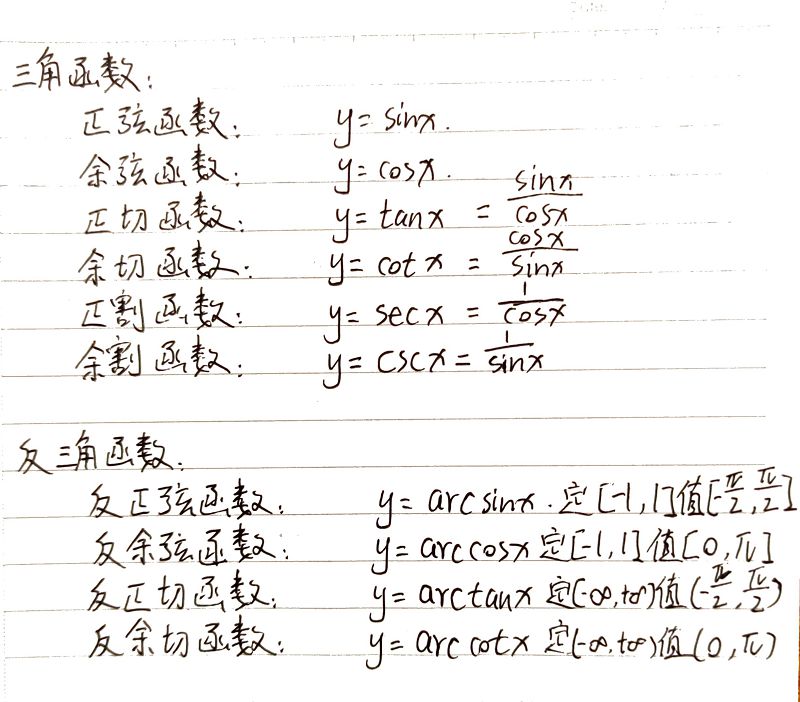 三角函数:
正弦函数: y = sinx.
余弦函数: y = cosx.
正切函数: y = tanx = sinx/cosx
余切函数: y = cotx = cosx/sinx
正割函数: y = secx = 1/cosx
余割函数: y = cscx = 1/sinx
反三角函数:
反正弦函数: y = arcsinx. 定[-1,1]值[-π/2,π/2]
反余弦函数: y = arccosx 定[-1,1]值[0,π]
反正切函数: y = arctanx 定(-∞,+∞)值(-π/2,π/2)
反余切函数: y = arccotx 定(-∞,+∞)值(0,π)